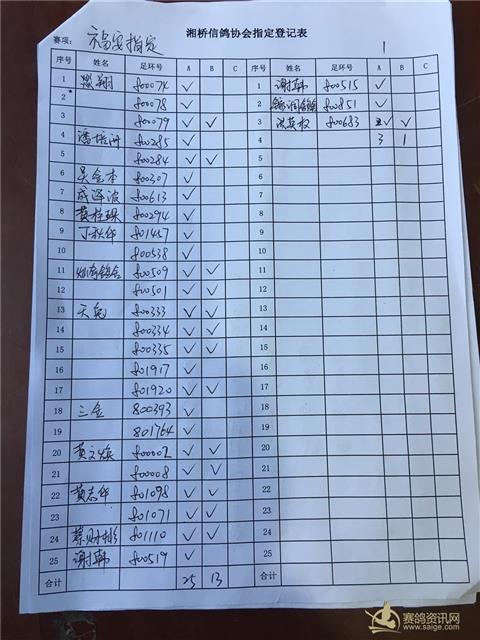 湘桥信鸽协会指定登记表
赛项: 福安指定 1
序号 姓名 足环号 A B C 序号 姓名 足环号 A B C
1 燦翔 800074 ✓ 1 谢韩 800515 ✓
2 800078 ✓ 2 800851 ✓
3 800079 ✓ ✓ 3 800683 ✓ ✓
4 800285 ✓ 4 3 1
5 800284 ✓ ✓ 5
6 吴金本 800307 ✓ 6
7 成泽波 800613 ✓ 7
8 黄桂珠 800294 ✓ 8
9 丁秋华 801457 ✓ 9
10 800538 ✓ 10
11 800509 ✓ ✓ 11
12 800501 ✓ ✓ 12
13 800333 ✓ ✓ 13
14 800334 ✓ ✓ 14
15 800335 ✓ ✓ 15
16 801917 ✓ 16
17 801920 ✓ ✓ 17
18 三金 800393 ✓ 18
19 801764 ✓ 19
20 黄文焕 800002 ✓ ✓ 20
21 800008 ✓ ✓ 21
22 黄志华 801098 ✓ ✓ 22
23 801071 ✓ ✓ 23
24 801110 ✓ ✓ 24
25 谢韩 800519 ✓ 25
合计 25 13 合计
赛鸽资讯网
www.saige.com